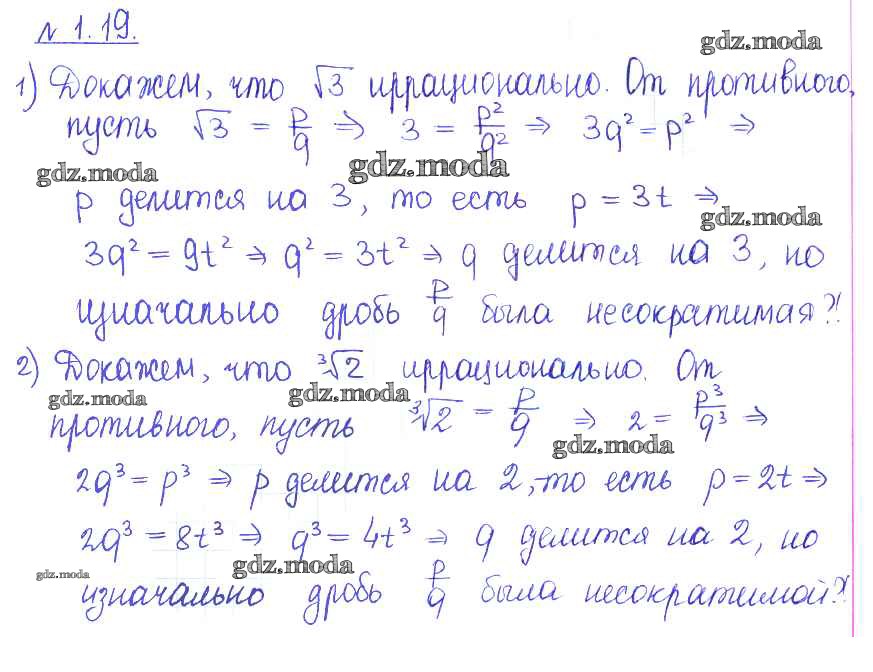 № 1.19.
gdz.moda
1) Докажем, что √3 иррационально. От противного,
пусть √3 = p/q ⇒ 3 = p²/q² ⇒ 3q² = p² ⇒
gdz.moda gdz.moda
p делится на 3, то есть p = 3t ⇒
gdz.moda
3q² = 9t² ⇒ q² = 3t² ⇒ q делится на 3, но
изначально дробь p/q была несократимая?!
2) Докажем, что ∛2 иррационально. От
gdz.moda gdz.moda
противного, пусть ∛2 = p/q ⇒ 2 = p³/q³ ⇒
gdz.moda
2q³ = p³ ⇒ p делится на 2, то есть p = 2t ⇒
2q³ = 8t³ ⇒ q³ = 4t³ ⇒ q делится на 2, но
gdz.moda gdz.moda
изначально дробь p/q была несократимой?!